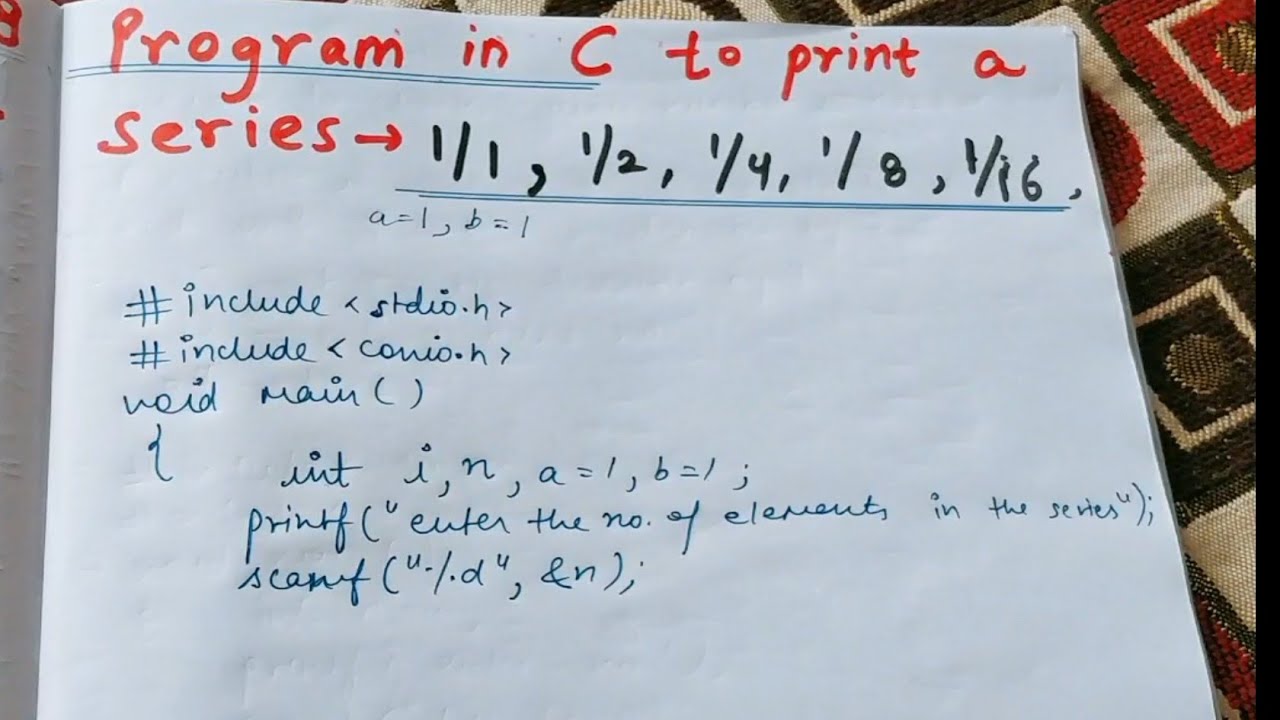 Program in C to print a
series → 1/1, 1/2, 1/4, 1/8, 1/16.
a=1, b=1
#include <stdio.h>
#include <conio.h>
void main()
{ int i, n, a=1, b=1;
printf("enter the no. of elements in the series");
scanf("%d", &n);